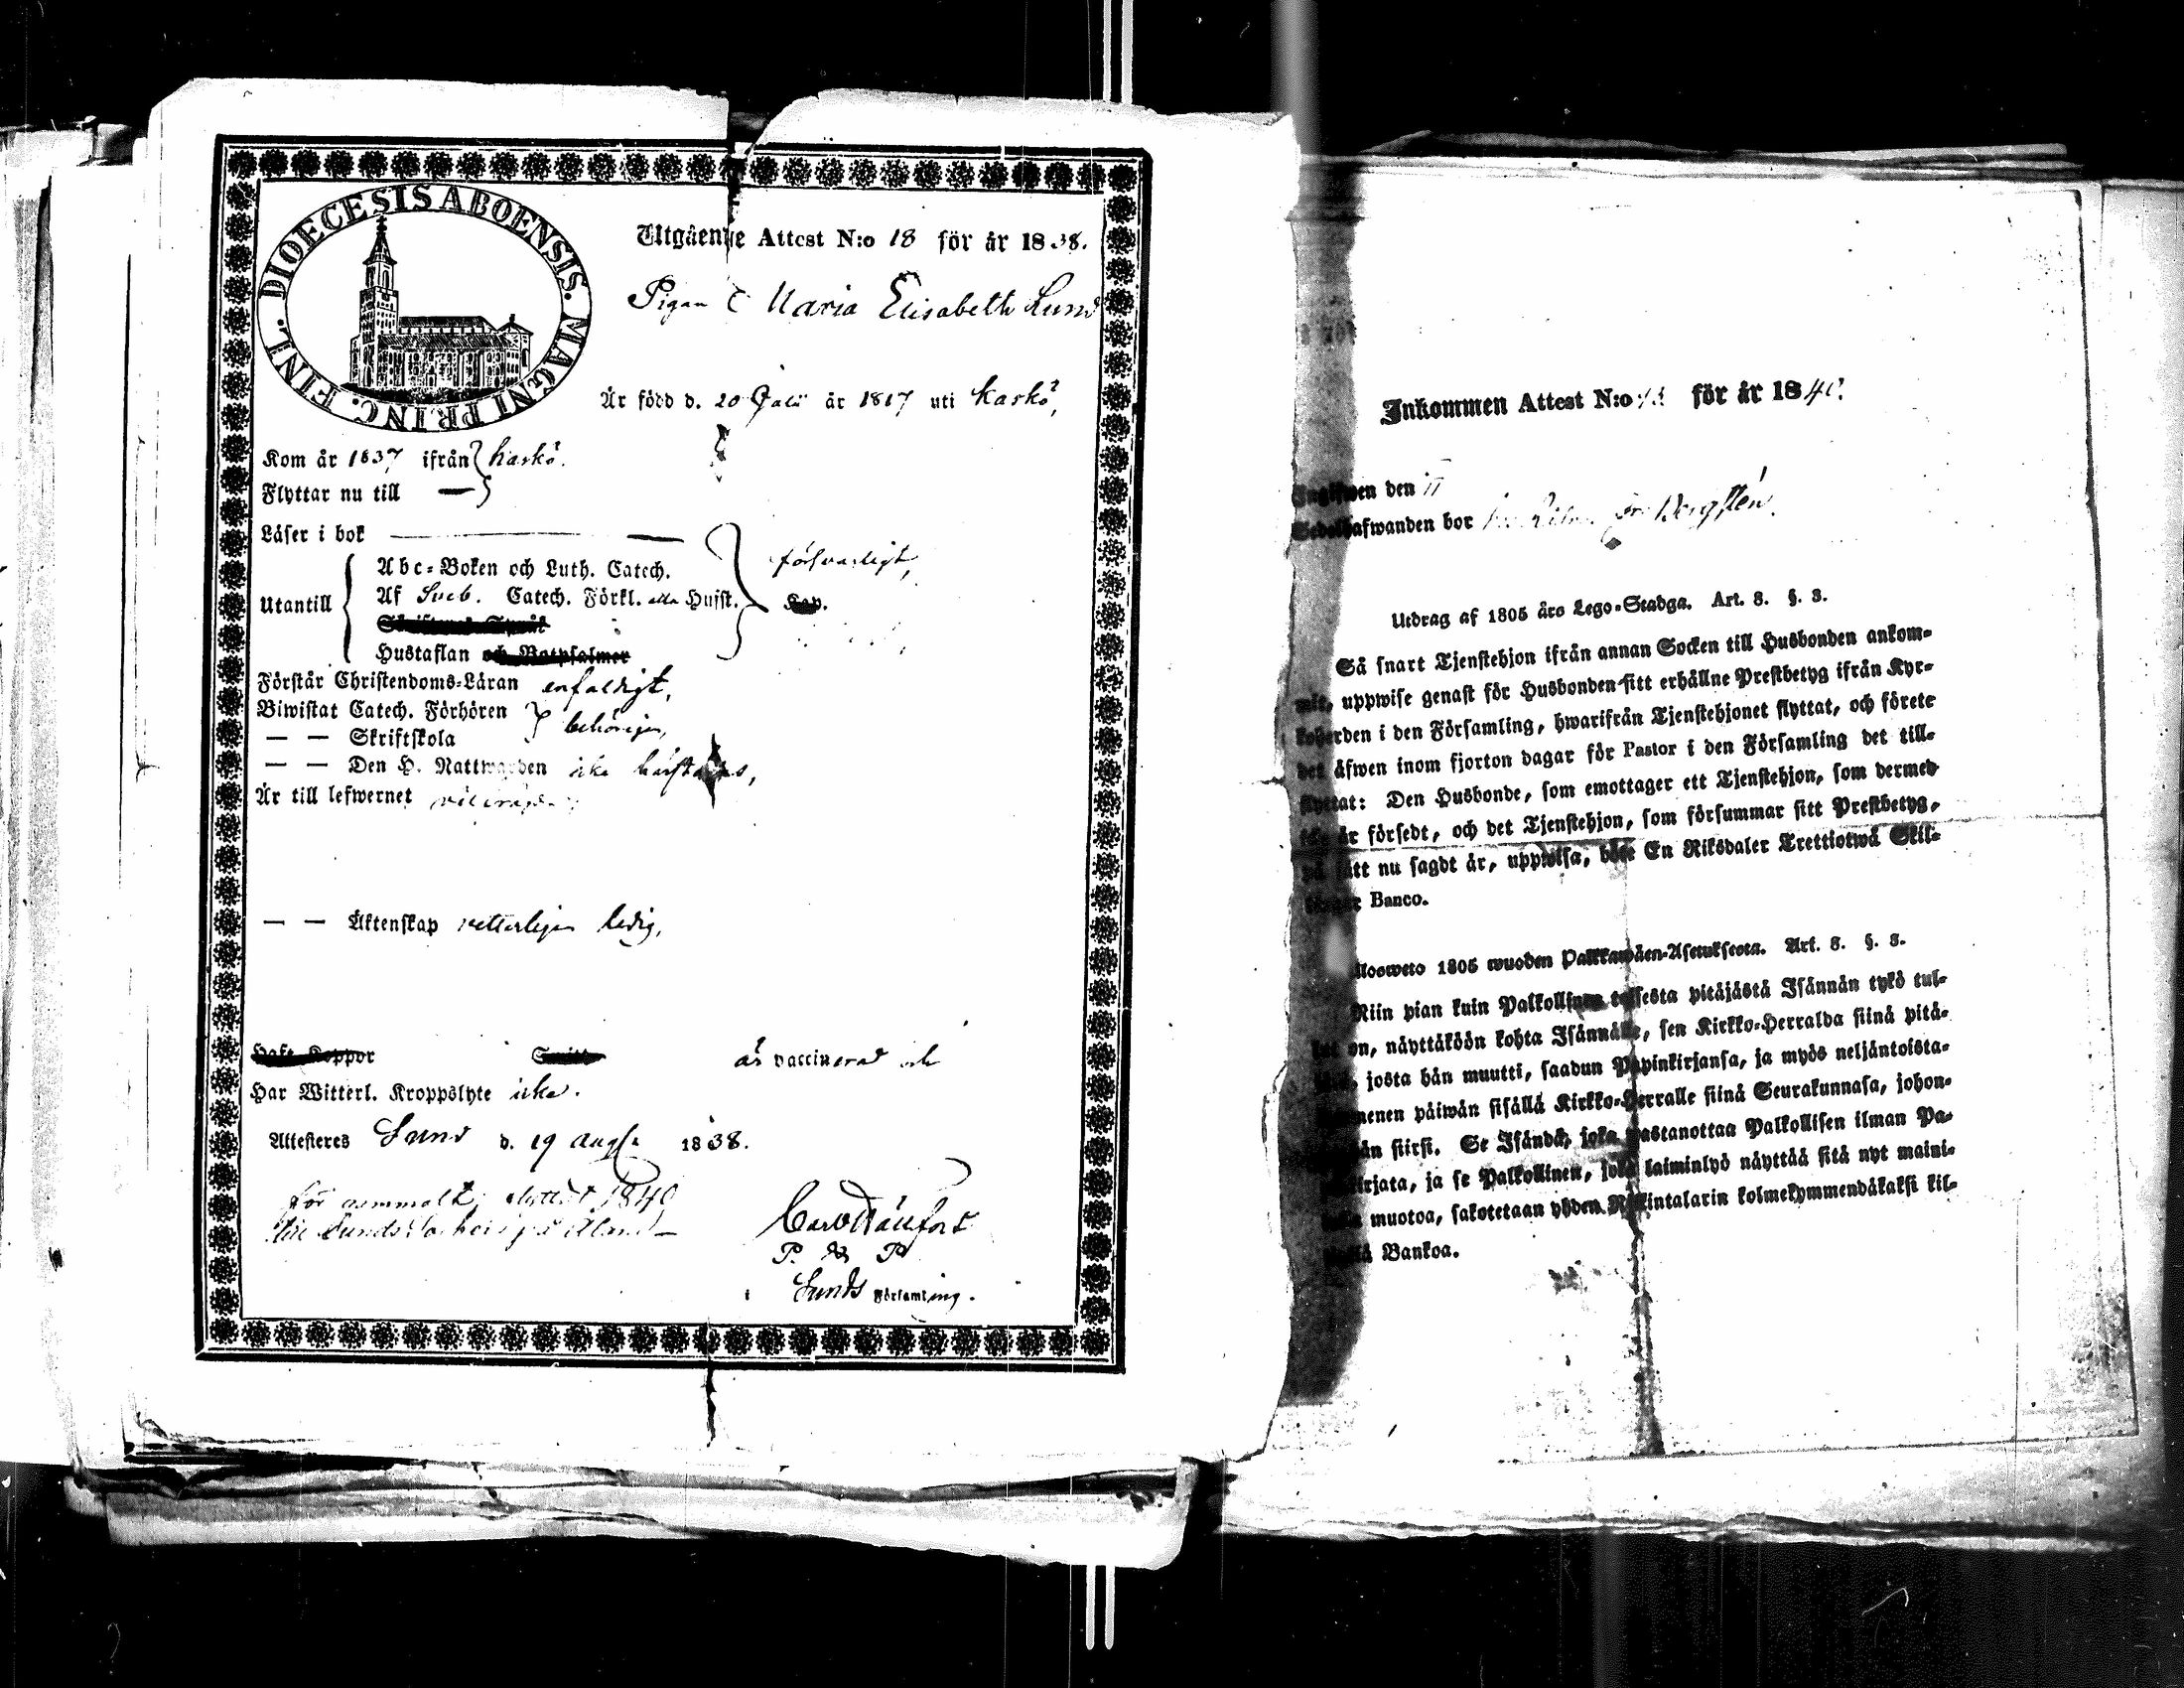 DIOECESIS ABOENSIS. MAGNI PRINC. FINL.
Utgående Attest N:o 18 för år 1838.
Pigan Maria Elisabeth Lund
Är född d. 20 Julii år 1817 uti Kaskö,
Kom år 1837 ifrån Kaskö.
Flyttar nu till —
Läser i bok —
Abc-Boken och Luth. Catech. försvarligt,
Utantill Af Sveb. Catech. Förkl. Hufst. Kap.
Hustaflan och Botpsalmer
Förstår Christendoms-Läran enfaldigt,
Biwistat Catech. Förhören behörigen,
— — Skriftskola
— — Den H. Nattwarden icke
Är till lefwernet
— — Äktenskap vetterligen ledig,
Haft Koppor är vaccinerad
Har Witterl. Kroppslyte icke.
Attesteres Sund d. 19 Aug 1838.
för 1840
till Sunds på Åland
P.
i Sunds Församling.
Inkommen Attest N:o för år 1840.
Ingifwen den
Sedelhafwanden bor Bergsten.
Utdrag af 1805 års Lego-Stadga. Art. 8. §. 3.
Så snart Tjenstehjon ifrån annan Socken till Husbonden ankom-
mit, uppwise genast för Husbonden sitt erhållne Prestbetyg ifrån Kyr-
koherden i den Församling, hwarifrån Tjenstehjonet flyttat, och förete
det äfwen inom fjorton dagar för Pastor i den Församling det till-
flyttat: Den Husbonde, som emottager ett Tjenstehjon, som dermed
är försedt, och det Tjenstehjon, som försummar sitt Prestbetyg,
på sätt nu sagdt är, uppwisa, böte En Riksdaler Trettiotwå Skil-
lingar Banco.
Ulosweto 1805 wuoden Palkkawäen-Asetuksesta. Art. 8. §. 3.
Niin pian kuin Palkollinen toisesta pitäjästä Isännän tykö tul-
lut on, näyttäköön kohta Isännälle, sen Kirkko-Herralda siinä pitä-
josta hän muutti, saadun Papinkirjansa, ja myös neljäntoista-
päiwän sisällä Kirkko-Herralle siinä Seurakunnasa, johon-
hän siirsi. Se Isändä, joka wastanottaa Palkollisen ilman Pa-
pinkirjata, ja se Palkollinen, joka laiminlyö näyttää sitä nyt maini-
muotoa, sakotetaan yhden Riikintalarin kolmekymmendäkaksi kil-
Bankoa.